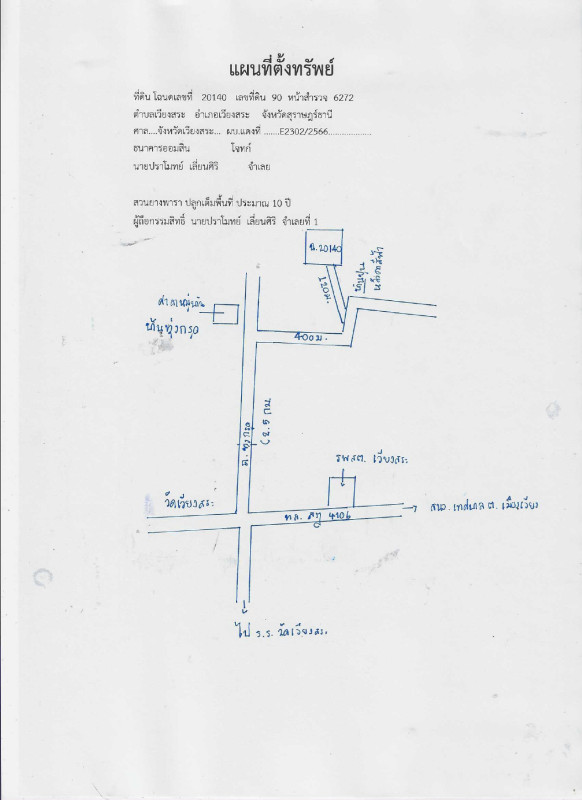 แผนที่ตั้งทรัพย์
ที่ดิน โฉนดเลขที่ 20140 เลขที่ดิน 90 หน้าสำรวจ 6272
ตำบลเวียงสระ อำเภอเวียงสระ จังหวัดสุราษฎร์ธานี
ศาล....จังหวัดเวียงสระ... ผบ.แดงที่ ......E2302/2566...................
ธนาคารออมสิน โจทก์
นายปราโมทย์ เลี่ยนศิริ จำเลย
สวนยางพารา ปลูกเต็มพื้นที่ ประมาณ 10 ปี
ผู้ถือกรรมสิทธิ์ นายปราโมทย์ เลี่ยนศิริ จำเลยที่ 1
ฉ.20140
120ม.
บ้านปูน
หลังคาสีฟ้า
ศาลาหมู่บ้าน
บ้านทุ่งกรูด
400ม.
2.5 กม
ถ.ทุ่งกรูด
รพสต. เวียงสระ
วัดเวียงสระ
ทล. สฎ
สนง. เทศบาล ต. เมืองเวียง
ไป ร.ร. วัดเวียงสระ